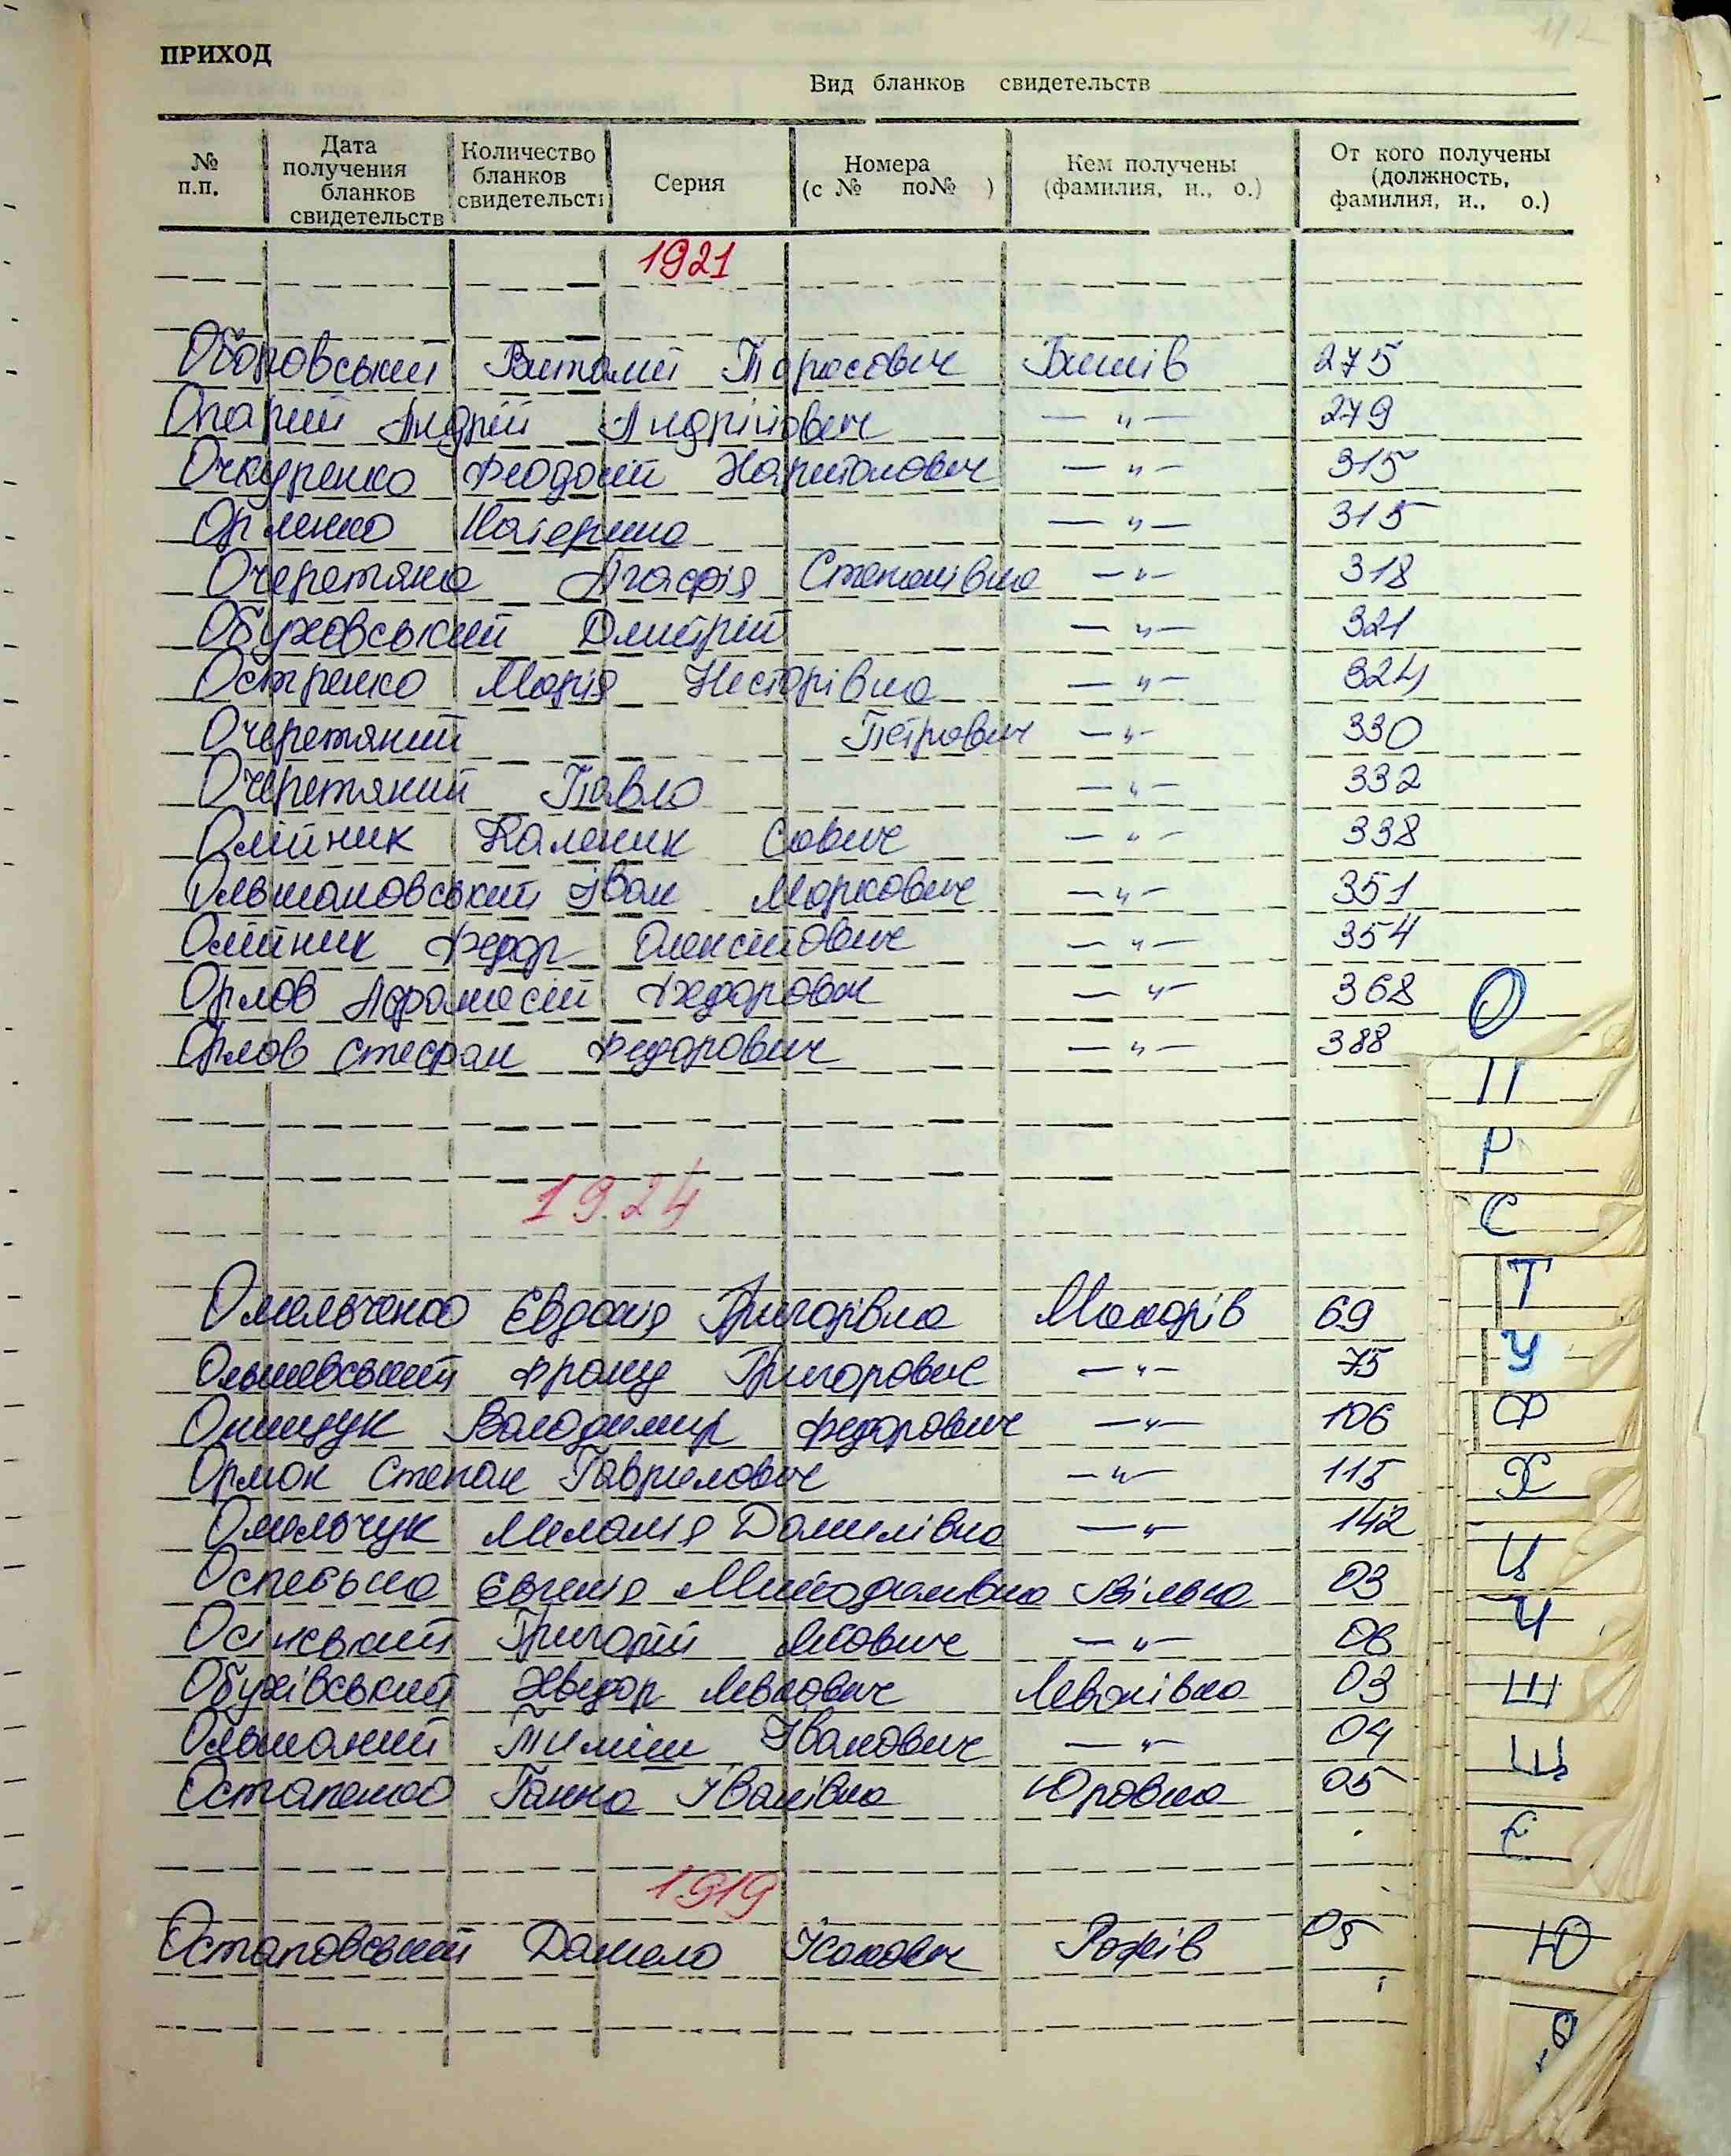 112
ПРИХОД
Вид бланков свидетельств
№ п.п.
Дата получения бланков свидетельств
Количество бланков свидетельств
Серия
Номера (с № по№ )
Кем получены (фамилия, и., о.)
От кого получены (должность, фамилия, и., о.)
1921
Оборовський Виталий Тарасович Бишів 275
Опарий Андрій Андрійович —"— 279
Очкуренко Феодосій Харитонович —"— 315
Орленко Катерина —"— 315
Очеретяна Агафія Степанівна —"— 318
Обуховський Дмитрій —"— 321
Остренко Марія Несторівна —"— 324
Очеретяний Петрович —"— 330
Очеретяний Павло —"— 332
Олійник Каленик Савич —"— 338
Ольшановський Іван Маркович —"— 351
Олійник Федор Олексійович —"— 354
Орлов Афанасій Федорович —"— 368
Орлов Стефан Федорович —"— 388
1924
Омельченко Євдокія Григорівна Макарів 69
Ольшевський Франц Григорович —"— 75
Онищук Володимир Федорович —"— 106
Ормак Степан Гаврилович —"— 115
Омельчук Меланія Данилівна —"— 142
Євгенія Вільна 03
Осінський Григорій —"— 06
Обухівський Хведор Левкович 03
Ольшаний Тиміш Іванович —"— 04
Остапенко Ганна Іванівна Юровка 05
1919
Остаповський Данило Ісакович Рожів 05
О
П
Р
С
Т
У
Ф
Х
Ц
Ч
Ш
Щ
Є
Ю
Я